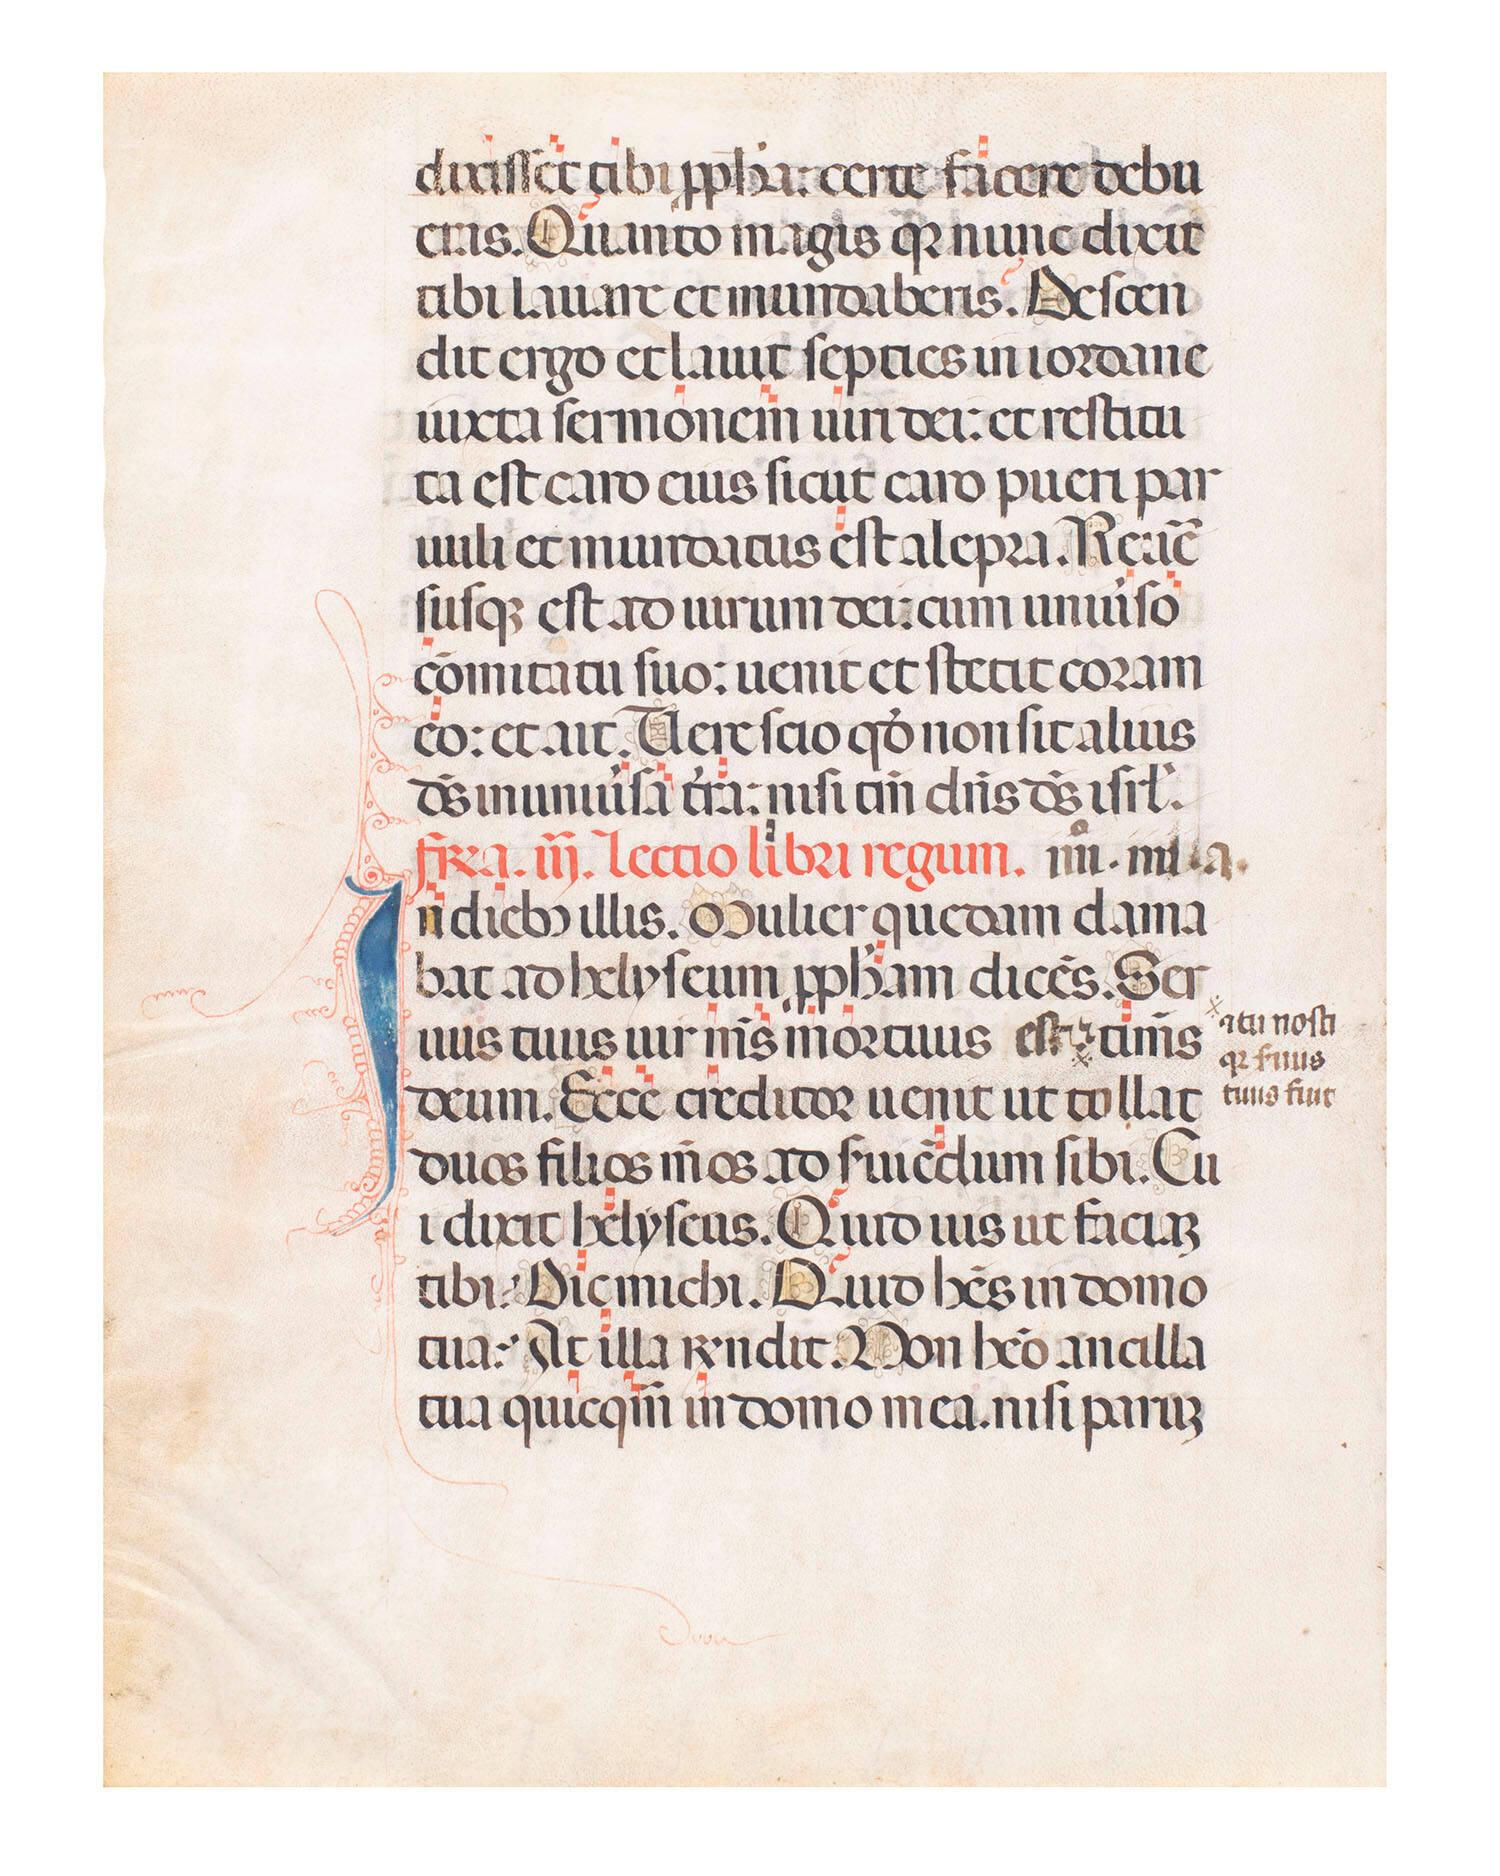 dixisset tibi ꝓph̓a: certe facere debu
eras. Quanto magis qꝛ nunc dixit
tibi lauare et mundaberis. Descen
dit ergo et lauit septies in iordane
iuxta sermonem uiri dei: et restitu
ta est caro eius sicut caro pueri par
uuli et mundatus est a lepra. Reuē
susqꝫ est ad uirum dei: cum uniu̓so
cōmitatu suo: uenit et stetit coram
eo: et ait. Uere scio qd̓ non sit alius
ds̄ in uniu̓sa t̓ra: nisi tm̄ dn̄s ds̄ isrl̓.
fr̄a. iij. Lectio libri regum. iiii.
n diebꝫ illis. Mulier quedam clama
bat ad helyseum ꝓph̓am dicēs. Ser
uus tuus uir ms̄ mortuus est: timēs
atu nosti
qꝛ suus
tuus fuit
deum. Ecce creditor uenit ut tollat
duos filios mōs ad s̓uiēdum sibi. Cu
i dixit helyseus. Quid uis ut faciaꝫ
tibi? Dic michi. Quid hēs in domo
tua? At illa rn̄dit. Non hēo ancilla
tua quicqm̄ in domo mea. nisi paruꝫ